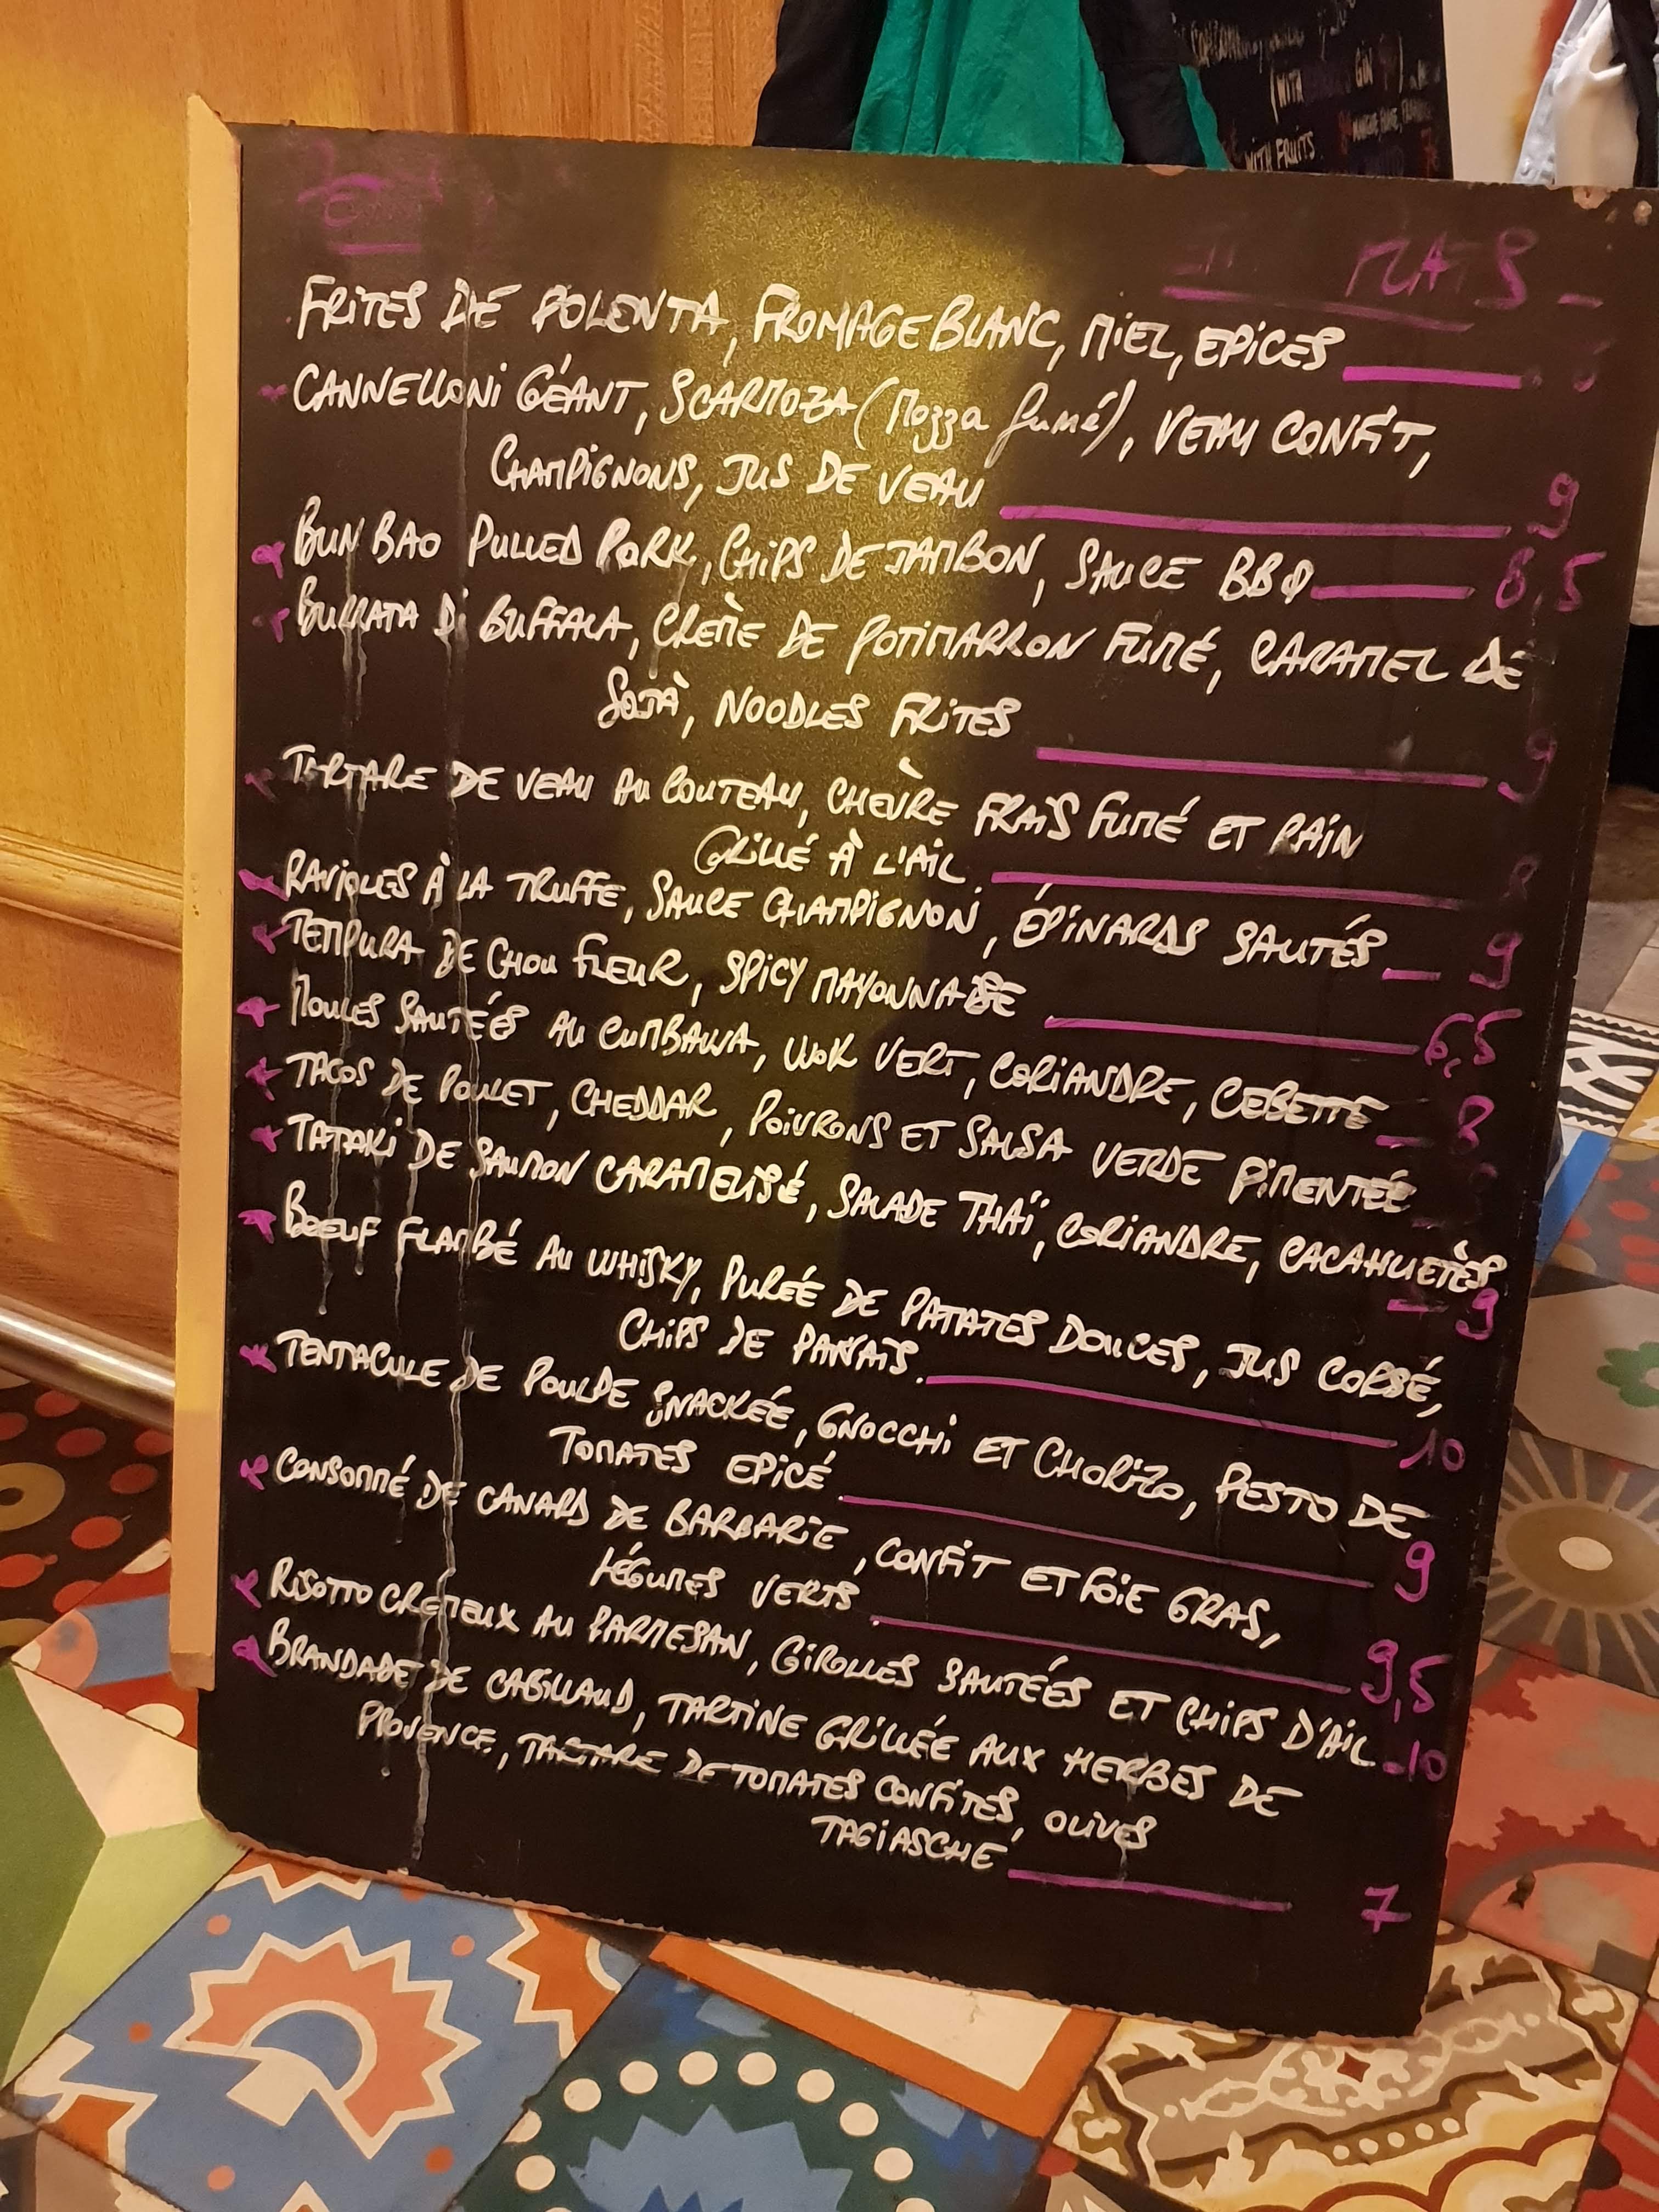 (WITH GIN
WITH FRUITS
PLATS -
FRITES DE POLENTA, FROMAGE BLANC, MIEL, EPICES
CANNELLONI GÉANT, SCARMOZA (Mozza fumé), VEAU CONFIT,
CHAMPIGNONS, JUS DE VEAU 9
BUN BAO PULLED PORK, CHIPS DE JAMBON, SAUCE BBQ 8,5
BURRATA Di BUFFALA, CRÈME DE POTIMARRON FUMÉ, CARAMEL DE
SOJA, NOODLES FRITES 9
TARTARE DE VEAU AU COUTEAU, CHÈVRE FRAIS FUMÉ ET PAIN
GRILLÉ À L'AIL. 8
RAVIOLES À LA TRUFFE, SAUCE CHAMPIGNON, ÉPINARDS SAUTÉS 9
TEMPURA DE CHOU FLEUR, SPICY MAYONNAISE 6,5
MOULES SAUTÉES AU CUMBAWA, WOK VERT, CORIANDRE, CEBETTE 8
TACOS DE POULET, CHEDDAR, POIVRONS ET SALSA VERDE PIMENTÉE
TATAKI DE SAUMON CARAMELISÉ, SALADE THAÏ, CORIANDRE, CACAHUETÈS
9
BOEUF FLAMBÉ AU WHISKY, PURÉE DE PATATES DOUCES, JUS CORSÉ,
CHIPS DE PANAIS. 10
TENTACULE DE POULPE SNACKÉE, GNOCCHI ET CHORIZO, PESTO DE
TOMATES EPICÉ 9
CONSOMMÉ DE CANARD DE BARBARIE, CONFIT ET FOIE GRAS,
LÉGUMES VERTS 9,5
RISOTTO CREMEUX AU PARMESAN, GIROLLES SAUTÉES ET CHIPS D'AIL 10
BRANDADE DE CABILLAUD, TARTINE GRILLÉE AUX HERBES DE
PROVENCE, TARTARE DE TOMATES CONFITES, OLIVES
TAGIASCHE 7